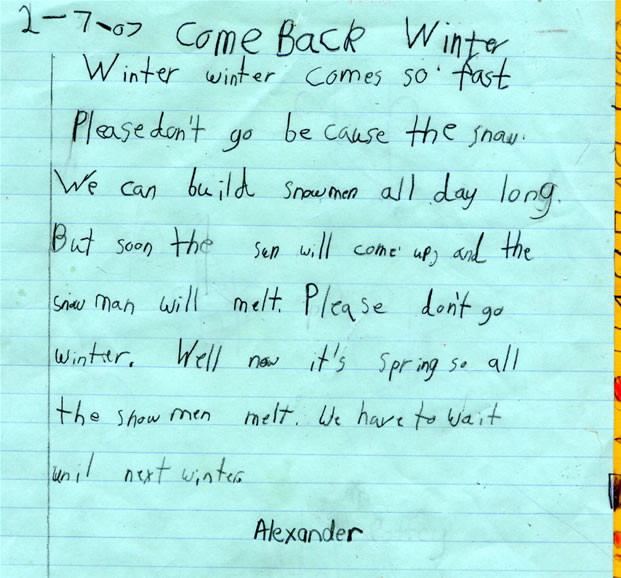 2-7-07 Come Back Winter
Winter winter comes so fast
Please don't go be cause the snow.
We can build snowmen all day long.
But soon the sun will come up, and the
snow man will melt. Please don't go
winter. Well now it's spring so all
the snow men melt. We have to wait
unil next winter.
Alexander